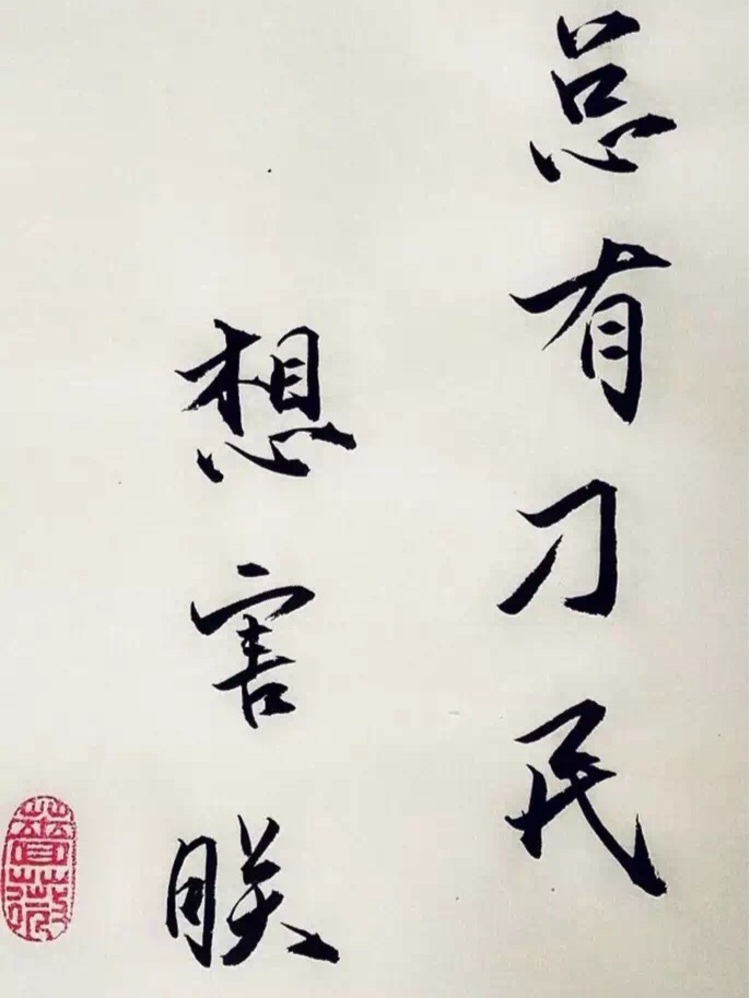 总有刁民
想害朕